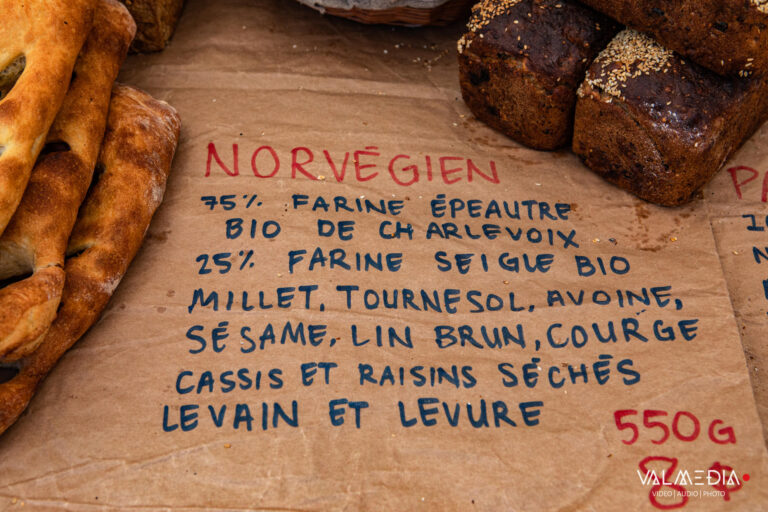 NORVÉGIEN
75% FARINE ÉPEAUTRE
BIO DE CHARLEVOIX
25% FARINE SEIGLE BIO
MILLET, TOURNESOL, AVOINE,
SÉSAME, LIN BRUN, COURGE
CASSIS ET RAISINS SÉCHÉS
LEVAIN ET LEVURE
550G
VALMEDIA
VIDEO | AUDIO | PHOTO